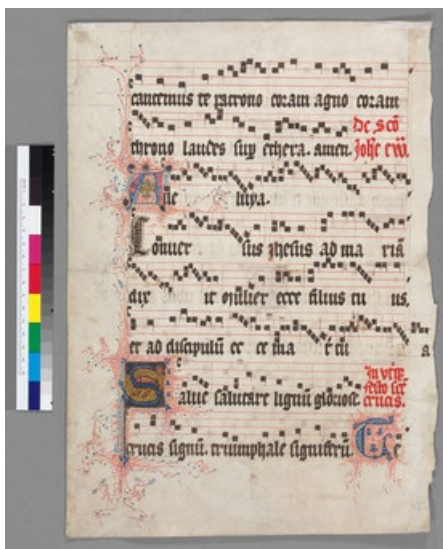 cantemus te patrono coram agno coram
throno laudes sup ethera. amen. De scō
Johē ew̄.
Alle luya.
Conver sus ihesus ad ma riā
dix it mulier ecce filius tu us,
et ad discipulū ec ce ma t tu a
Salve salutare lignū gloriose
crucis.
crucis signū. triumphale signiferū. Te